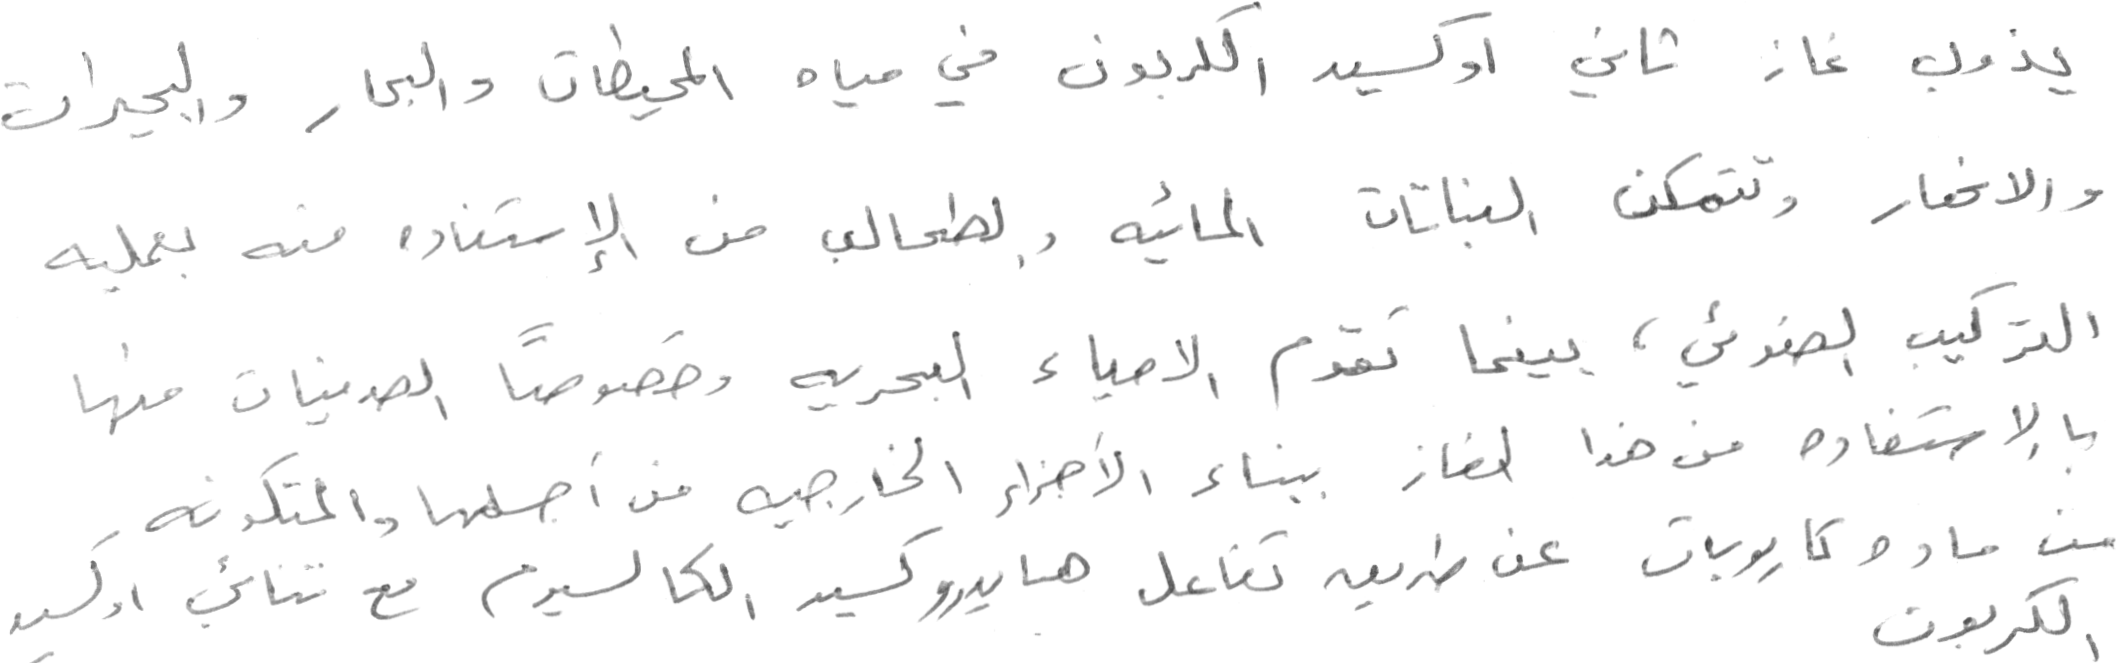 يذوب غاز ثاني اوكسيد الكربون في مياه المحيطات والبحار والبحيرات
والانهار وتتمكن النباتات المائيه والطحالب من الإستفاده منه بعمليه
التركيب الضوئي، بينما تقوم الاحياء البحريه وخصوصاً الصدفيات منها
بالاستفاده من هذا الغاز ببناء الأجزاء الخارجيه من أجسامها والمتكونه
من ماده كاربونات عن طريق تفاعل هايدروكسيد الكالسيوم مع ثنائي اوكسيد
الكربون